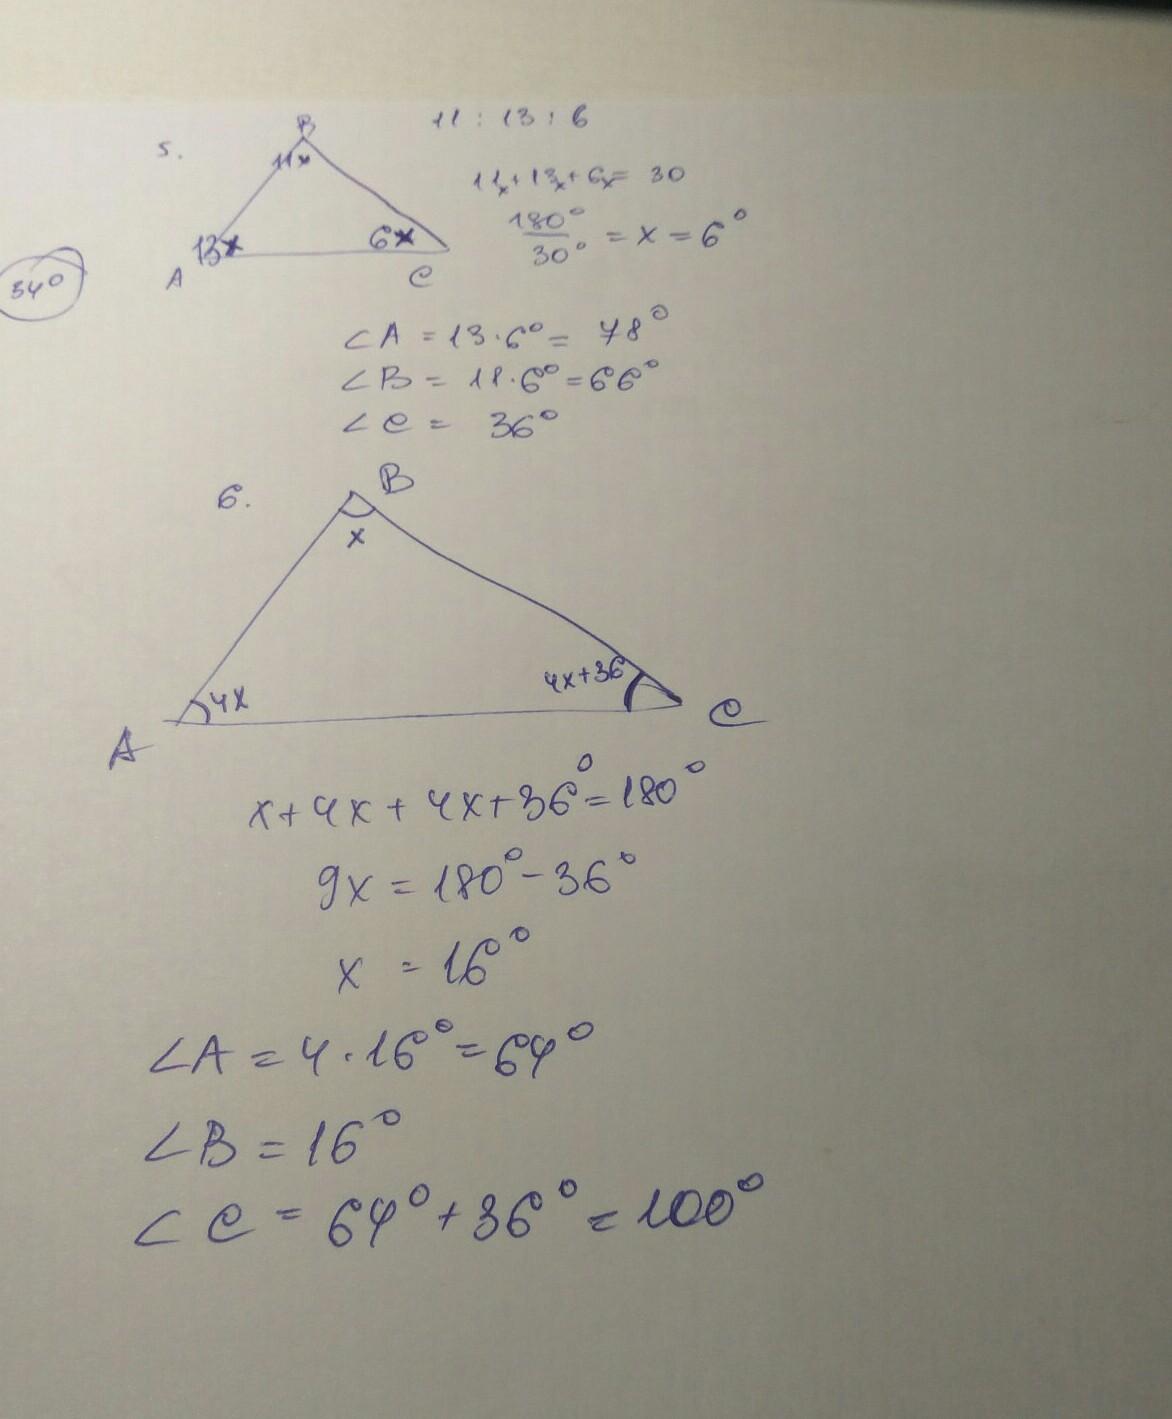 5.
B
11x
13x
6x
A
C
11 : 13 : 6
11x+13x+6x= 30
180° / 30° = x = 6°
34°
∠A = 13·6° = 78°
∠B = 11·6° = 66°
∠C = 36°
6.
B
x
4x
4x+36
A
C
x+4x+4x+36°=180°
9x = 180°-36°
x = 16°
∠A = 4·16°=64°
∠B = 16°
∠C = 64°+36°=100°